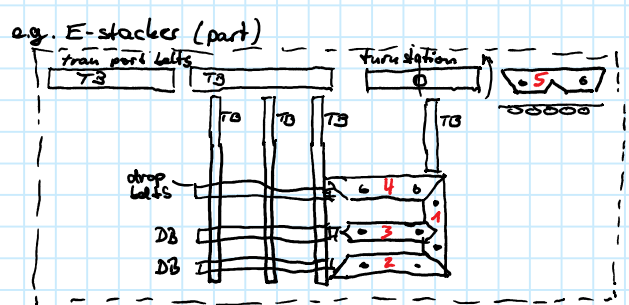 e.g. E-stacker (part)
tran port belts turnstation
TB TB 5
TB TB TB TB
drop
belts 4
1
DB 3
DB 2